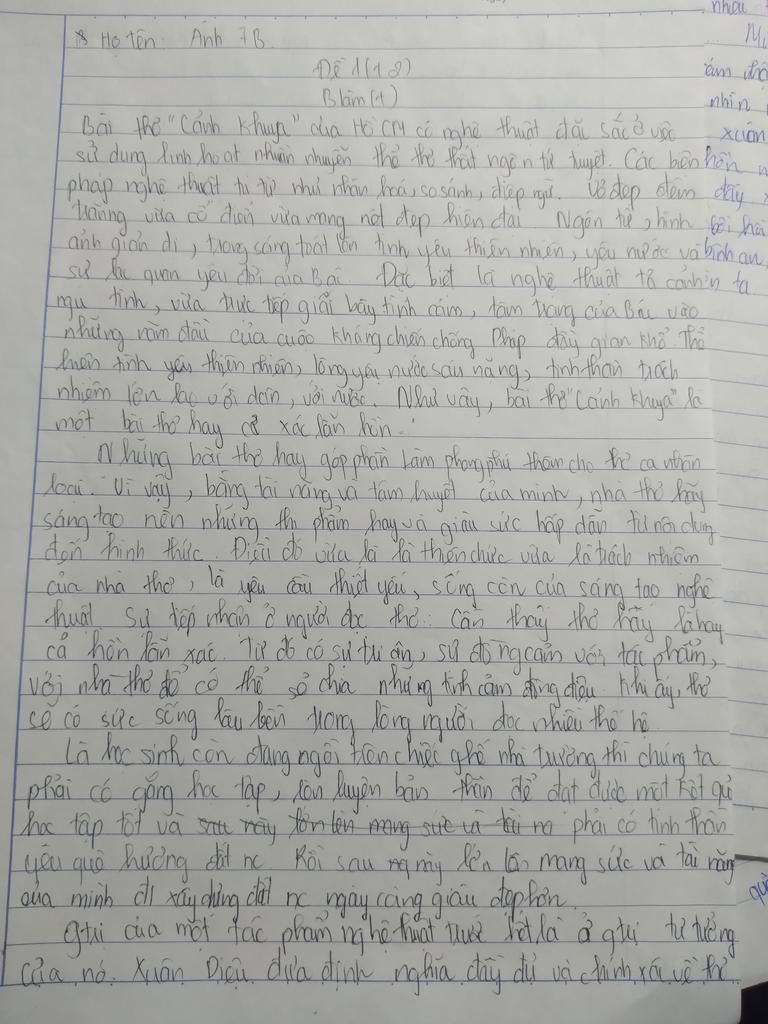 Họ tên: Anh 7B
nhiều
Đề 1 (12)
B làm (1)
Bài thơ "Cảnh Khuya" của Hồ CM có nghệ thuật đặc sắc ở việc
xuân
sử dụng linh hoạt nhuần nhuyễn thể thơ thất ngôn tứ tuyệt. Các biện
hồn
pháp nghệ thuật tu từ như nhân hoá, so sánh, điệp ngữ. Vẻ đẹp đêm
đây
trăng vừa cổ điển vừa mang nét đẹp hiện đại. Ngôn từ, hình
bồi hồi
ảnh giản dị, trong sáng toát lên tình yêu thiên nhiên, yêu nước và
bình an
sự lạc quan yêu đời của Bác. Đặc biệt là nghệ thuật tả cảnh
ta
ngụ tình, vừa trực tiếp giãi bày tình cảm, tâm trạng của Bác vào
những năm đầu của cuộc kháng chiến chống Pháp đầy gian khổ. Thể
hiện tình yêu thiên nhiên, lòng yêu nước sâu nặng, tinh thần trách
nhiệm lớn lạc với dân, với nước. Như vậy, bài thơ "Cảnh Khuya" là
một bài thơ hay cả xác lẫn hồn.
Những bài thơ hay góp phần làm phong phú thêm cho thơ ca nhân
loại. Vì vậy, bằng tài năng và tâm huyết của mình, nhà thơ hãy
sáng tạo nên những thi phẩm hay và giàu sức hấp dẫn từ nội dung
đến hình thức. Điều đó vừa là là thiên chức vừa là trách nhiệm
của nhà thơ, là yêu cầu thiết yếu, sống còn của sáng tạo nghệ
thuật. Sự tiếp nhận ở người đọc thơ: Cần thấy thơ hãy là hay
cả hồn lẫn xác. Từ đó có sự tri ân, sự đồng cảm với tác phẩm,
với nhà thơ để có thể sẻ chia những tình cảm đồng điệu. Khi ấy, thơ
sẽ có sức sống lâu bền trong lòng người đọc nhiều thế hệ.
Là học sinh còn đang ngồi trên chiếc ghế nhà trường thì chúng ta
phải cố gắng học tập, rèn luyện bản thân để đạt được một kết quả
học tập tốt và sau này lớn lên mang sức và tài na phải có tinh thần
yêu quê hương đất nc. Rồi sau ng này lớn lên mang sức và tài năng
của mình đi xây dựng đất nc ngày càng giàu đẹp hơn.
Gtrị của một tác phẩm nghệ thuật trước hết là ở gtrị tư tưởng
của nó. Xuân Diệu đưa định nghĩa đầy đủ và chính xác về thơ